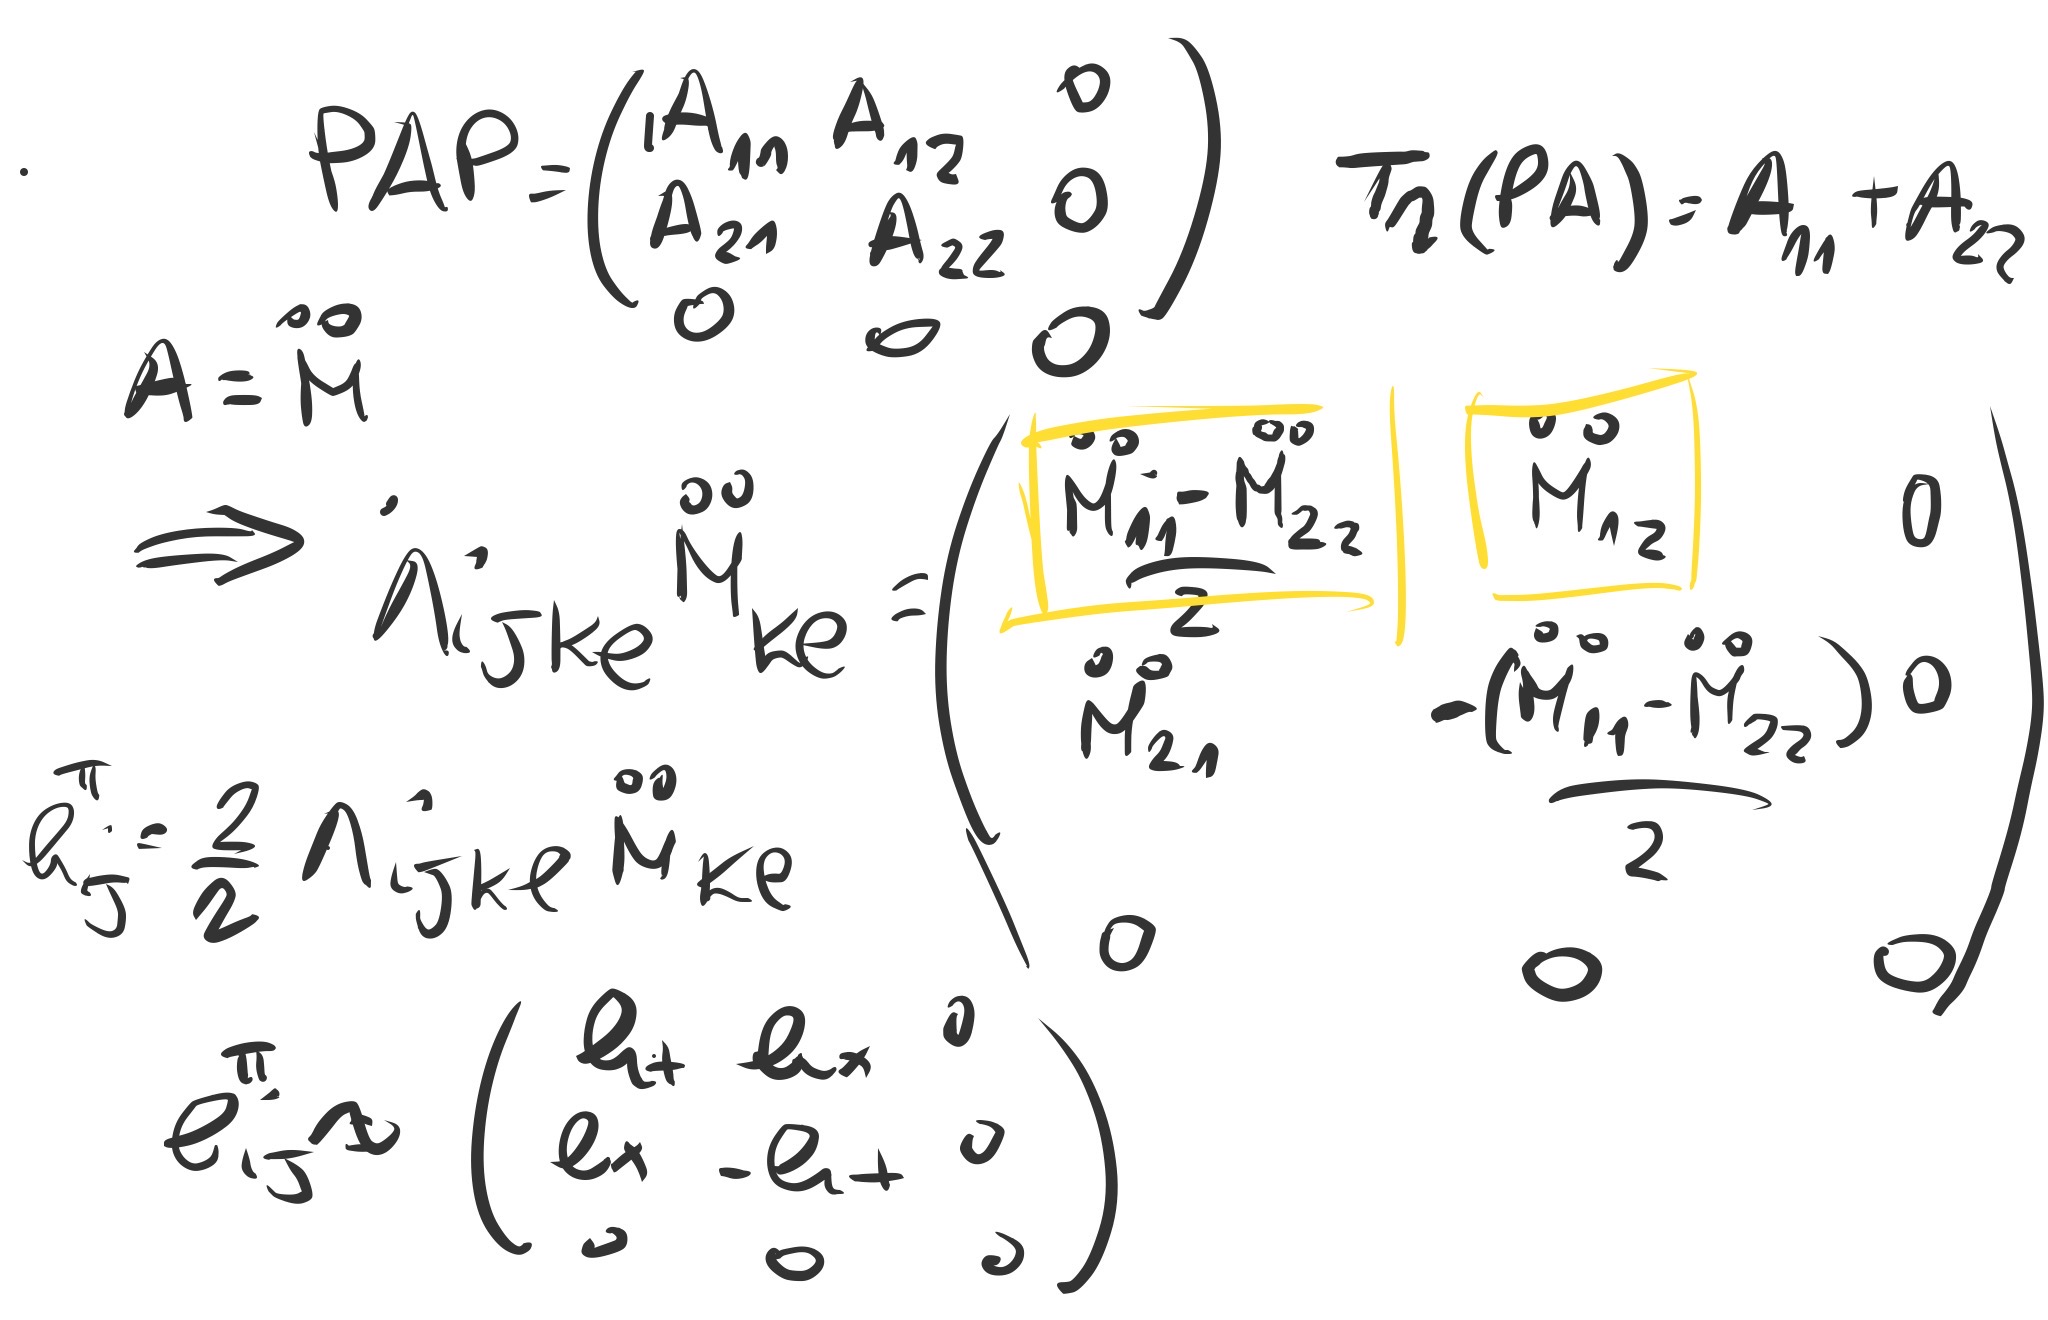 PAP = ( A₁₁ A₁₂ 0 ; A₂₁ A₂₂ 0 ; 0 0 0 )   Tr(PA) = A₁₁ + A₂₂
A = M̈
⇒ Λᵢⱼₖₗ M̈ₖₗ = ( (M̈₁₁ - M̈₂₂)/2 M̈₁₂ 0 ; M̈₂₁ -(M̈₁₁ - M̈₂₂)/2 0 ; 0 0 0 )
hᵢⱼᵀᵀ = 2/2 Λᵢⱼₖₗ M̈ₖₗ
( h₊ hₓ 0 ; hₓ -h₊ 0 ; 0 0 0 )